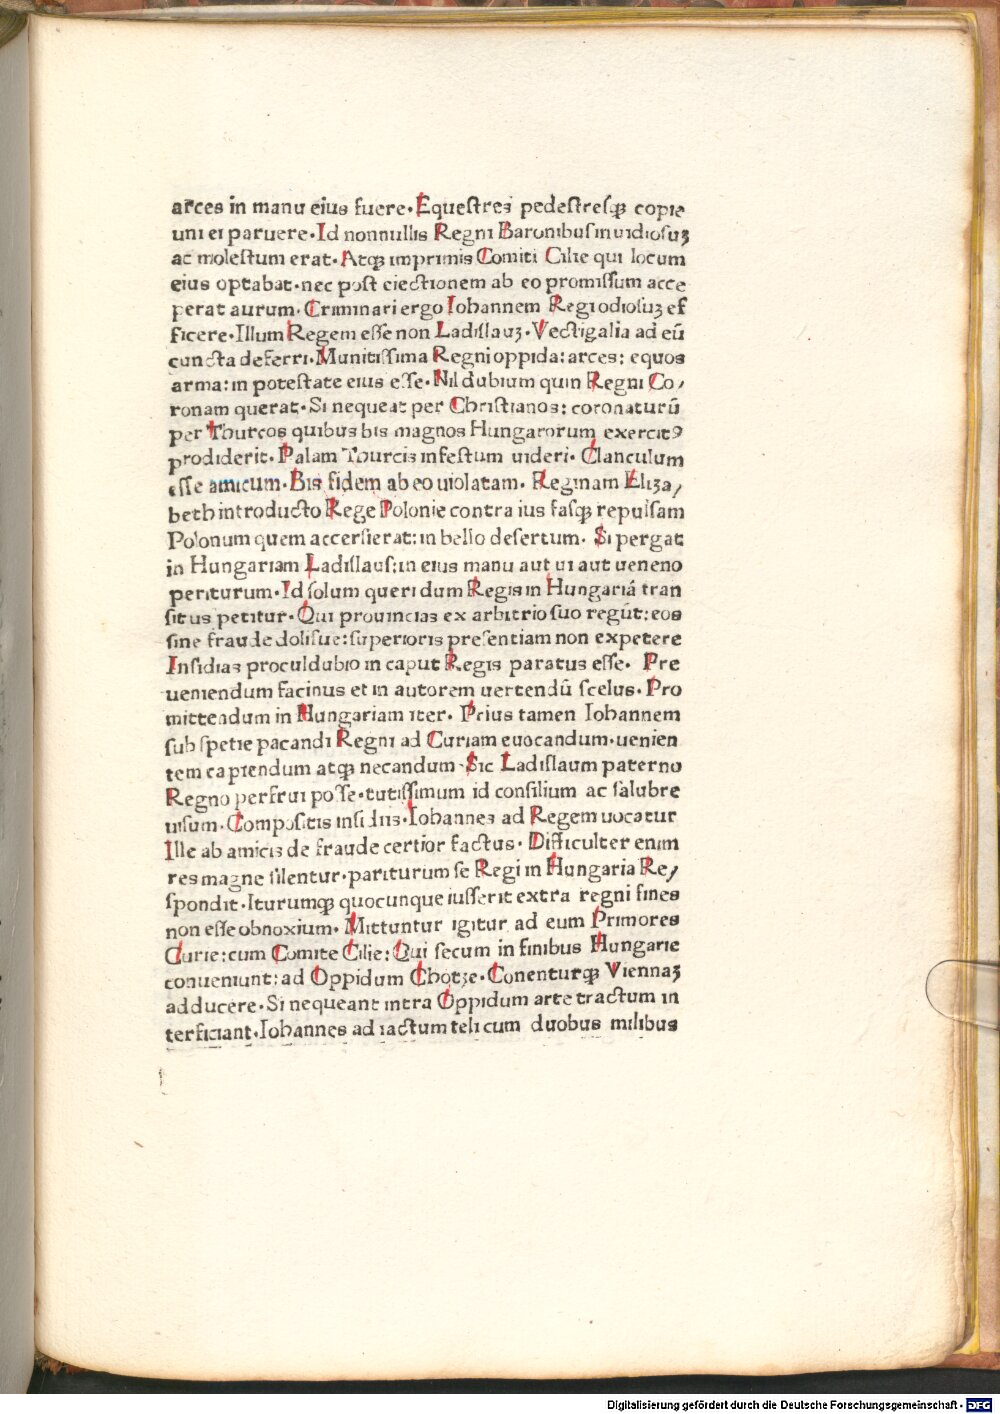 arces in manu eius fuere. Equeſtres pedeſtreſqꝫ copie
uni ei paruere. Id nonnullis Regni Baronibus inuidioſuꝫ
ac moleſtum erat. Atqꝫ imprimis Comiti Cilie qui locum
eius optabat. nec poſt eiectionem ab eo promiſſum acce
perat aurum. Criminari ergo Iohannem Regi odioſuꝫ ef
ficere. Illum Regem eſſe non Ladiſlauꝫ. Vectigalia ad eū
cuncta deferri. Munitiſſima Regni oppida: arces: equos
arma: in poteſtate eius eſſe. Nil dubium quin Regni Co/
ronam querat. Si nequeat per Chriſtianos: coronaturū
per Thurcos quibus bis magnos Hungarorum exercitꝰ
prodiderit. Palam Thurcis infeſtum uideri. Clanculum
eſſe amicum. Bis fidem ab eo uiolatam. Reginam Eliza/
beth introducto Rege Polonie contra ius faſqꝫ repulſam
Polonum quem accerſierat: in bello deſertum. Si pergat
in Hungariam Ladiſlaus: in eius manu aut ui aut ueneno
periturum. Id ſolum queri dum Regis in Hungariā tran
ſitus petitur. Qui prouincias ex arbitrio ſuo regūt: eos
ſine fraude doliſue: ſuperioris preſentiam non expetere
Inſidias proculdubio in caput Regis paratus eſſe. Pre
ueniendum facinus et in autorem uertendū ſcelus. Pro
mittendum in Hungariam iter. Prius tamen Iohannem
ſub ſpetie pacandi Regni ad Curiam euocandum. uenien
tem capiendum atqꝫ necandum. Sic Ladiſlaum paterno
Regno perfrui poſſe. tutiſſimum id conſilium ac ſalubre
uiſum. Compoſitis inſidiis. Iohannes ad Regem uocatur
Ille ab amicis de fraude certior factus. Difficulter enim
res magne ſilentur. pariturum ſe Regi in Hungaria Re/
ſpondit. Iturumqꝫ quocunque iuſſerit extra regni fines
non eſſe obnoxium. Mittuntur igitur ad eum Primores
Curie: cum Comite Cilie: Qui ſecum in finibus Hungarie
conueniunt: ad Oppidum Chotze. Conenturqꝫ Viennaꝫ
adducere. Si nequeant intra Oppidum arte tractum in
terficiant. Iohannes ad iactum teli cum duobus milibus
Digitalisierung gefördert durch die Deutsche Forschungsgemeinschaft - DFG